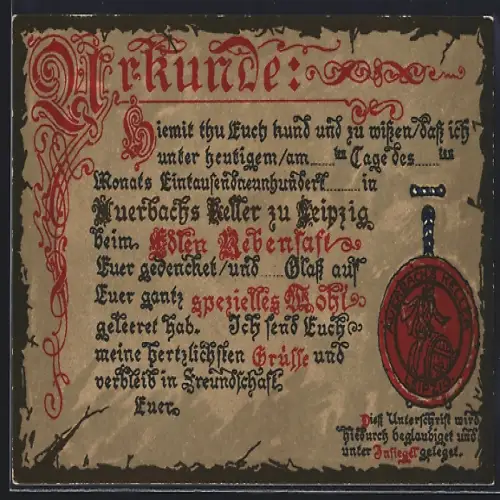 Urkunde:
Hiemit thu Euch kund und zu wißen/daß ich
unter heutigem/am....ten Tage des.....ten
Monats Eintausendneunhundert.........in
Auerbachs Keller zu Leipzig
beim Edlen Rebensaft
Euer gedencket/und.....Glaß auf
Euer gantz spezielles Wohl
geleeret hab. Ich send Euch
meine hertzlichsten Grüsse und
verbleib in Freundschaft.
Euer.
AUERBACHS KELLER
LEIPZIG
Dieß Unterschrift wird
hiedurch beglaubiget und
unter Insiegel geleget.